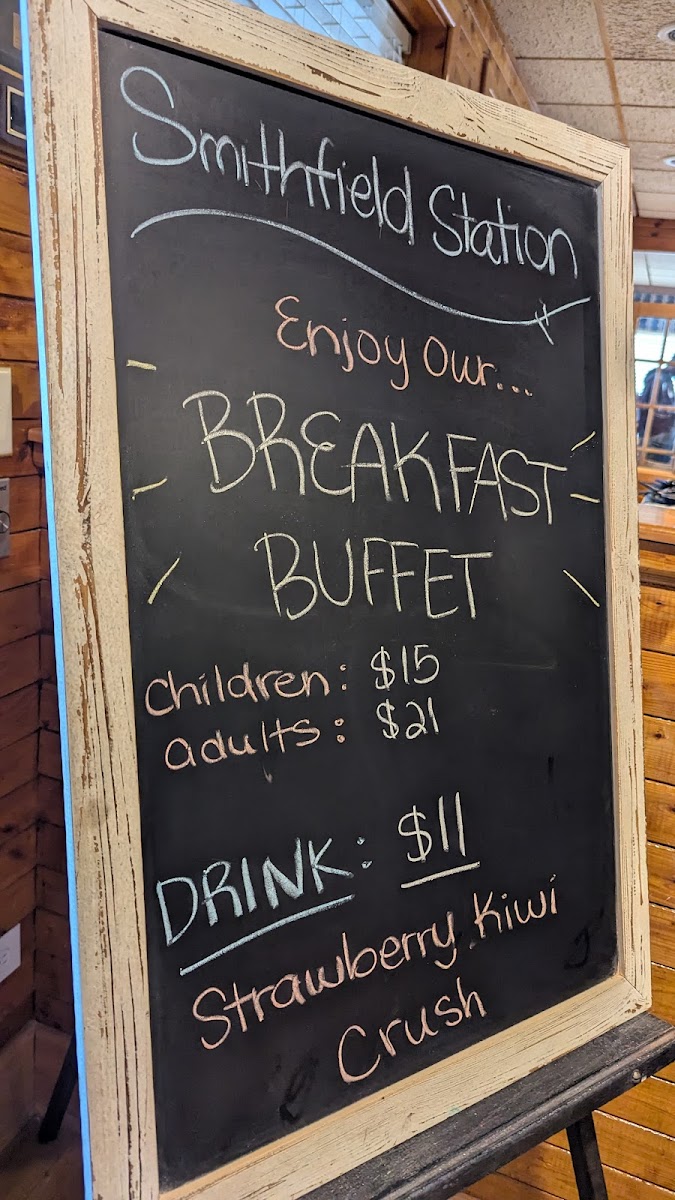 Smithfield Station
Enjoy Our...
BREAKFAST
BUFFET
Children: $15
adults: $21
DRINK: $11
Strawberry Kiwi
Crush